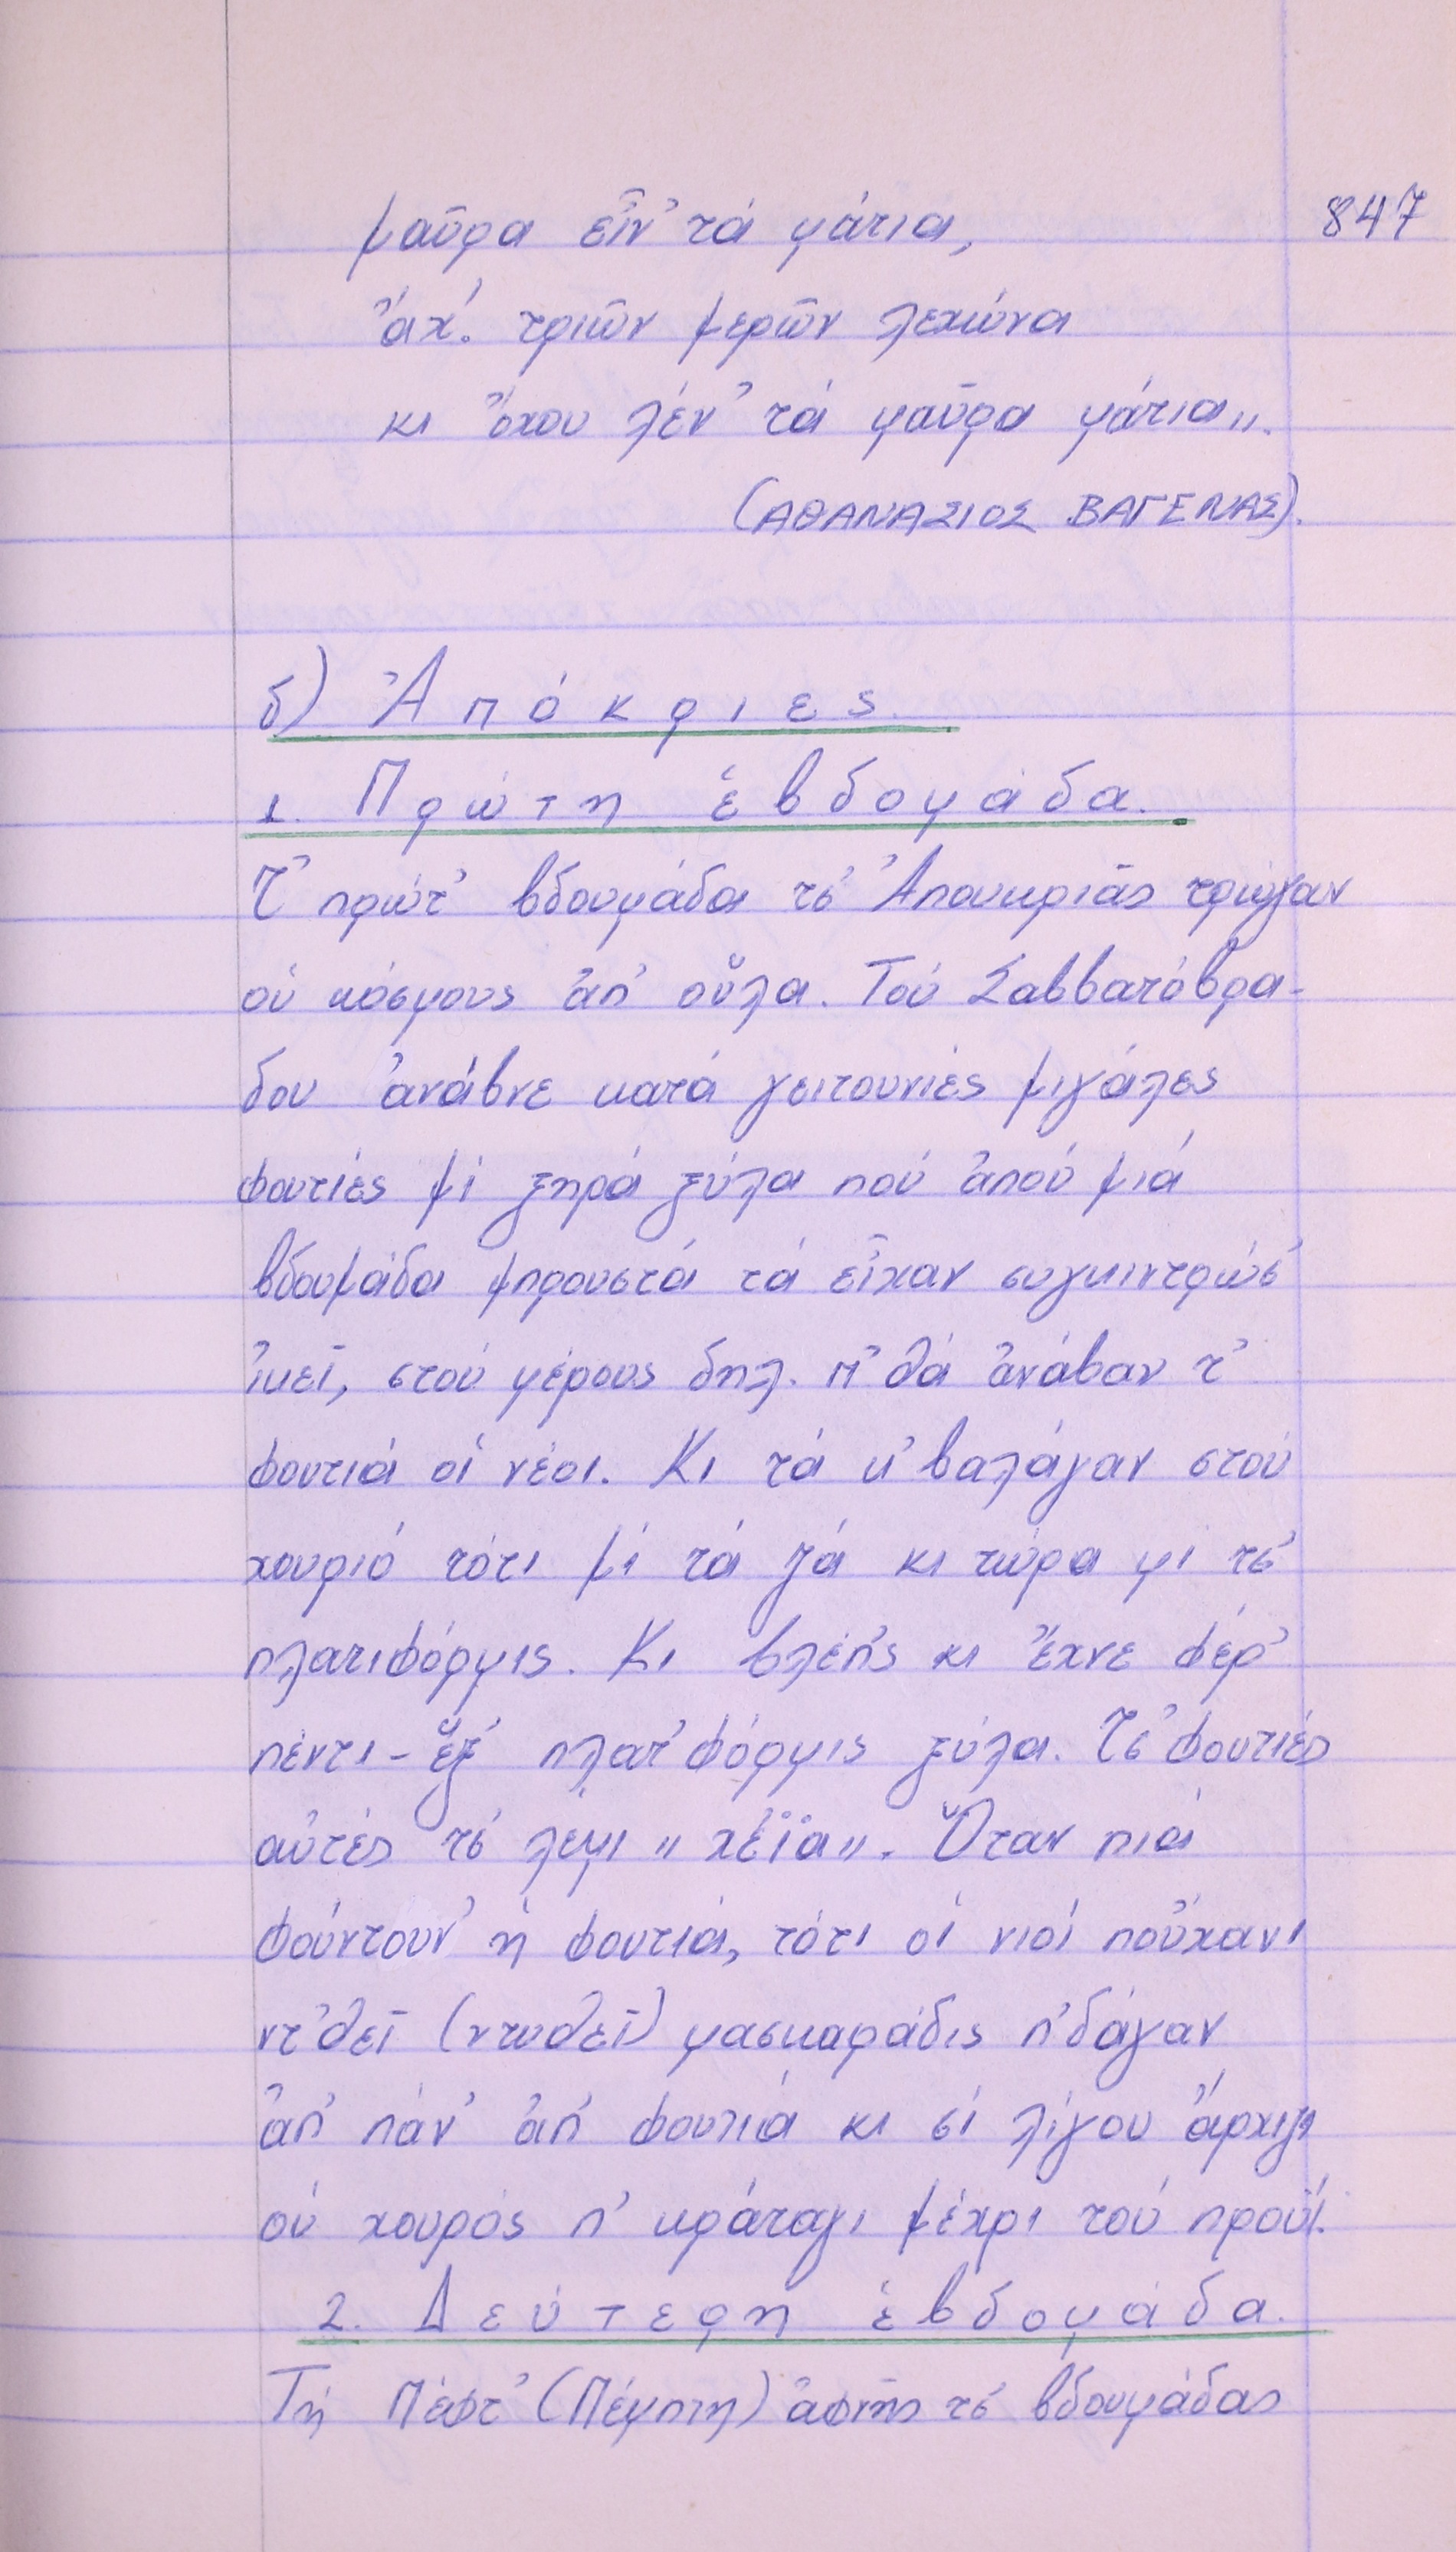 847
μαῦρα εἶν' τά μάτια,
ἄχ! τριῶν μερῶν λεχώνα
κι ὄχου λέν' τά μαῦρα μάτια„.
(ΑΘΑΝΑΣΙΟΣ ΒΑΓΕΝΑΣ).
δ) Ἀπόκριες.
1. Πρώτη ἑβδομάδα.
Τ' πρώτ' βδουμάδα τσ' Ἀπουκριᾶς τρώγαν
οὑ κόσμους ἀπ' οὗλα. Τού Σαββατόβρα-
δου ἀνάβνε κατά γειτουνιές μιγάλες
φουτιές μί ξηρά ξύλα πού ἀπού μιά
βδουμάδα μπρουστά τά εἶχαν συγκιντρώσ'
ἰκεῖ, στού μέρους δηλ. π' θά ἀνάβαν τ'
φουτιά οἱ νέοι. Κι τά κ'βαλάγαν στού
χουριό τότι μί τά ζά κι τώρα μι τσ'
πλατιφόρμις. Κι βλέπ'ς κι ἔχνε φέρ'
πέντι-ἕξ' πλατ'φόρμις ξύλα. Τσ' φουτιές
αὐτές τσ' λέμι „χέϊα„. Ὅταν πιά
φούντουν' ἡ φουτιά, τότι οἱ νιοί πούχανι
ντ'θεῖ (ντυθεῖ) μασκαράδις π'δάγαν
ἀπ' πάν' ἀπ' φουτιά κι σί λίγου ἄρχιζι
οὑ χουρός π' κράταγι μέχρι τού προυΐ.
2. Δεύτερη ἑβδομάδα.
Τή Πέφτ' (Πέμπτη) ἀφτῆς τσ' βδουμάδας